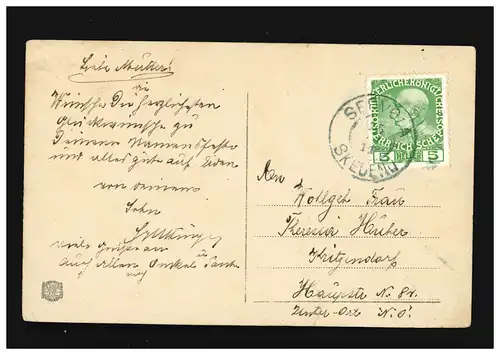 Liebe Mutter!
Wünsche Dir die herzlichsten
Glückwünsche zu
Deinem Namensfeste
und alles gute auf Erden
von deinem
Sohn
viele Grüße an
auch allen Onkel u Tant
KAISERLICHE KÖNIGLICHE ÖSTERREICHISCHE POST
5 HELLER 5
SERVOLA
SKEDENJ
An
Wohlgeb Frau
Theresia Huber
Kritzendorf
Hauptstr No 84.
Unter-Ort N.Ö.